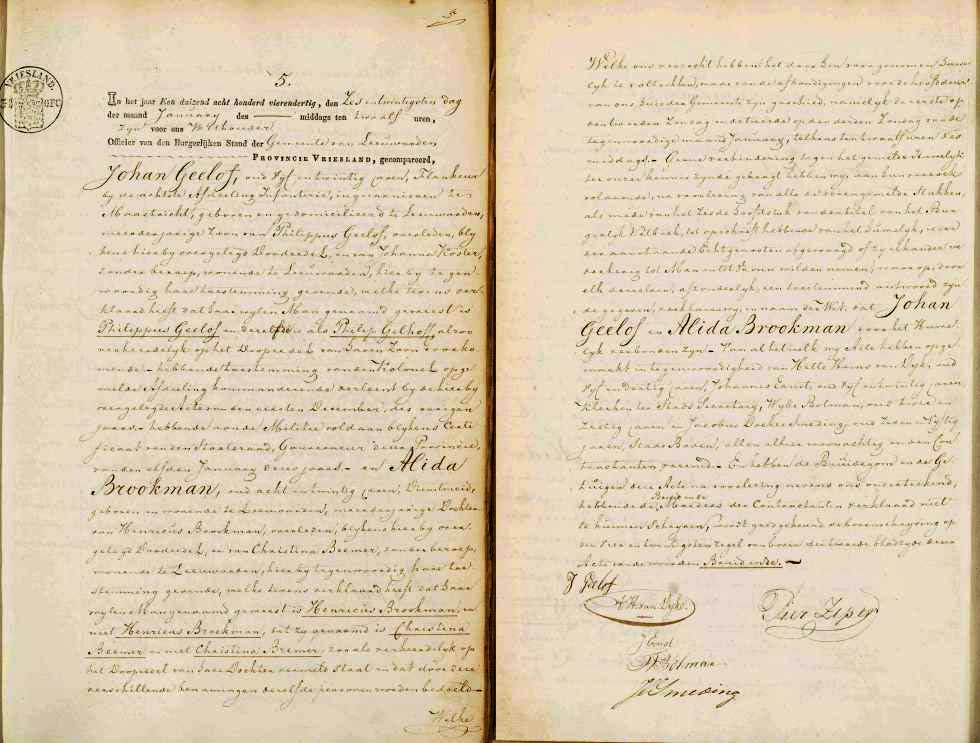 5.
VRIESLAND.
5.
In het jaar Een duizend acht honderd vierendertig, den Zes entwintigsten dag
der maand January des middags ten twaalf uren,
zyn voor ons
Officier van den Burgerlijken Stand der Gemeente van Leeuwarden
PROVINCIE VRIESLAND, gecompareerd,
Johan Geelof, oud Vyf entwintig jaren, Flankeur
by de achtste Afdeeling Infanterie, in garnisoen te
Maastricht, geboren en gedomicilieerd te Leeuwarden,
meerderjarige Zoon van Philippus Geelof, overleden, bly
kens hierby overgelegd Doodcedel, en van Johanna Köster,
zonder beroep, wonende te Leeuwarden, hier by te gen
woordig hare toestemming gevende, welke tevens ver
klaard heeft dat haar wylen Man genaamd geweest is
Philippus Geelof en dezelfde is als Philip Gelhoff, alzoo
verkeerdelyk op het Doopcedel van haren Zoon voorko
mende - hebbende toestemming van den Kolonel opge
melde Afdeeling kommanderende verleent by hierby
overgelegde Acte van den eersten December, des vorigen
jaars - hebbende aan de Militie voldaan blykens Certi
ficaat van den Staatsraad, Gouverneur dezer Provincie,
van den elfden January dezes jaars - en Alida
Brookman, oud acht entwintig jaren, Dienstmeid,
geboren en wonende te Leeuwarden, meerderjarige Dochter
van Henricus Brookman, overleden, blykens hierby over
gelegd Doodcedel, en van Christina Beemer, zonder beroep,
wonende te Leeuwarden, hier by tegenwoordig hare toe
stemming gevende, welke tevens verklaard heeft dat haar
wylen Man genaamd geweest is Henricus Brookman, en
niet Henricus Broekman, dat zy genaamd is Christina
Beemer en niet Christina Bremer, zoo als verkeerdelyk op
het Doopcedel van hare Dochter vermeld staat en dat door deze
verschillende benamingen dezelfde personen worden bedoeld -
Welke
Welke ons verzocht hebben het door hen voorgenomen Huwe
lyk te voltrekken, waarvan de afkondigingen voor de hoofddeur
van ons huis der Gemeente zyn geschied, namelyk de eerste op
den tweeden Zondag en de tweede op den derden Zondag van de
tegenwoordige maand January, telkens ten twaalf uren des
middags. - Geene verhindering tegen het gemelde Huwelyk
ter onzer kennis zynde gebragt hebben wy, aan hun verzoek
voldoende, na voorlezing van alle de bovengemelde Stukken,
als mede van het Zesde Hoofdstuk van den titel van het Bur
gerlyk Wetboek, tot opschrift hebbende van het Huwelyk, ieder
der aanstaande Echtgenooten afgevraagd of zy elkander ver
zekering tot Man en tot Vrouw wilden nemen; waarop, door
elk derzelven, afzonderlyk, een toestemmend antwoord zyn
de gegeven, verklaren wy, in naam der Wet, dat Johan
Geelof en Alida Brookman door het Huwe
lyk verbonden zyn - Van al hetwelk wy Acte hebben opge
maakt in tegenwoordigheid van van Dyk, oud
Vyf en dertig jaren, Johannes Ernst, oud Vyf entwintig jaren
Klerken ter Stads Secretary, Wybe Bolman, oud twee en
Zestig jaren en Jacobus Smeding, oud Zes en Vyftig
jaren, Stads Boden, allen alhier woonachtig en aan Con
tractanten vreemd. - En hebben de Bruidegom en de Ge
tuigen deze Acte na voorlezing nevens ons onderteekend,
hebbende de Moeders der Contractanten verklaard niet
Bruid en de
te kunnen Schryven, wordt goedgekeurd de bovenschryving op
den drie en twintigsten regel van boven der tweede bladzyde dezer
Acte van de woorden Bruid en de. -
J Geelof
H H van Dyk.
Pier Zeper
J Ernst
W Bolman
J D Smeding